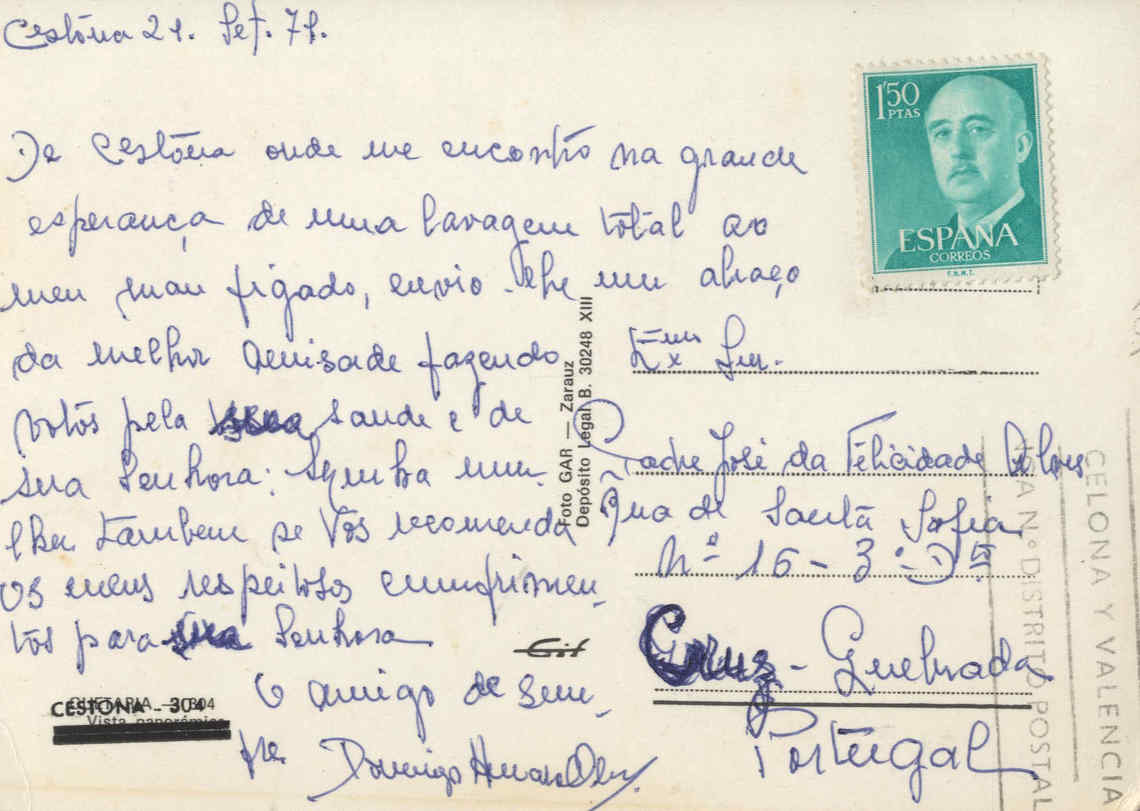 Cestôna 21. Set. 71.
De Cestôna onde me encontro na grande
esperança de uma lavagem total ao
meu mau figado, envio-lhe um abraço
da melhor amisade fazendo
votos pela sua saude e de
sua Senhora: Minha mu-
lher tambem se Vos recomenda
os meus respeitosos cumprimen-
tos para sua Senhora
O amigo de sem-
pre
Domingo
1'50
PTAS
ESPAÑA
CORREOS
F.N.M.T.
Exmo Snr.
Padre José da Felicidade Alves
Rua de Santa Sofia
Nº 16-3º-Dto
Cruz-Quebrada
Portugal
Foto GAR — Zarauz
Depósito Legal B. 30248 XIII
CESTONA - 304
GUETARIA - 304
Vista panorámica
CELONA Y VALENCIA
Nº DISTRITO POSTAL